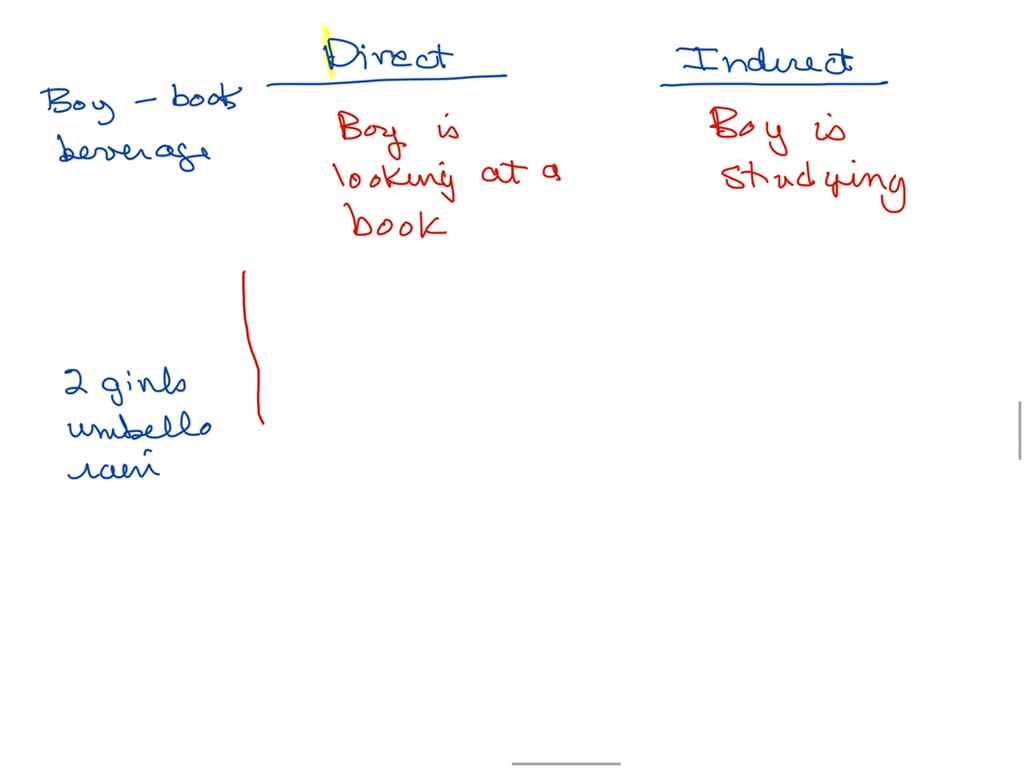 Direct
Indirect
Boy - book
beverage
Boy is
looking at a
book
Boy is
studying
2 girls
umbello
rain